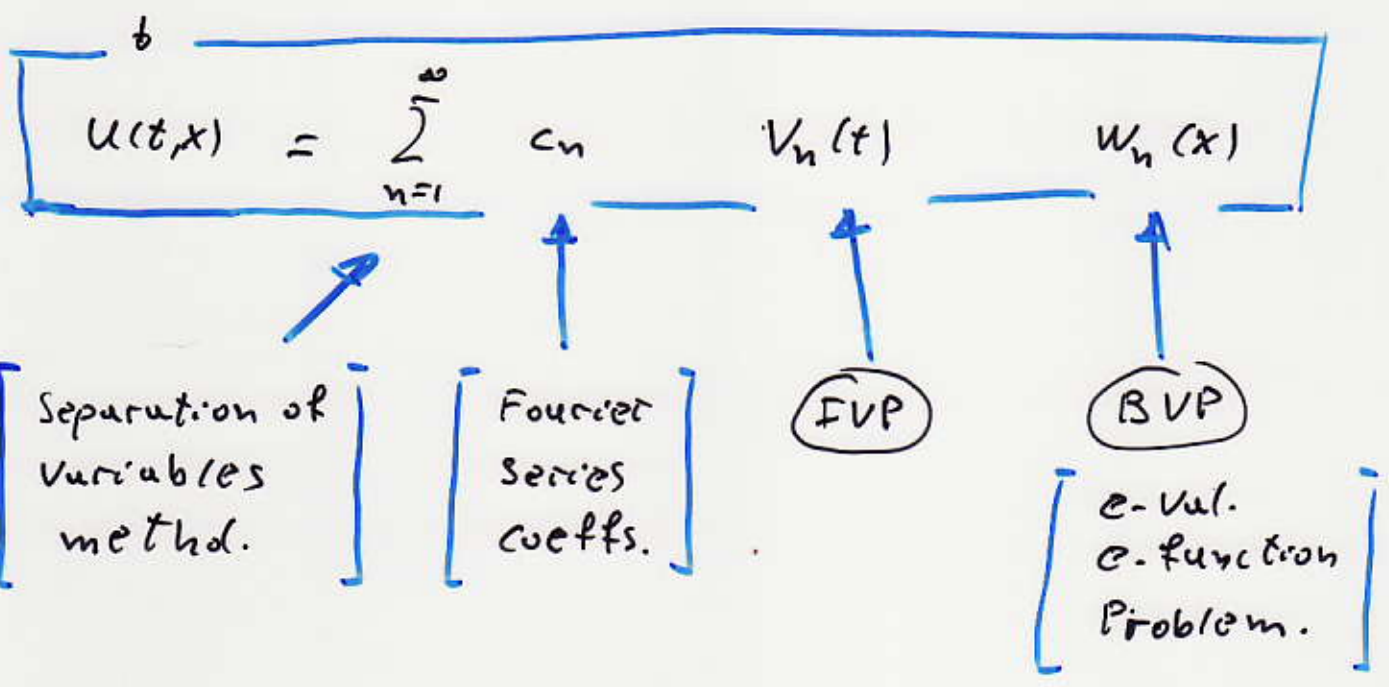 t
u(t,x) = ∞∑n=1 cn vn(t) wn(x)
Separation of
variables
methd.
Fourier
series
coeffs.
IVP
BVP
e-val.
e-function
Problem.